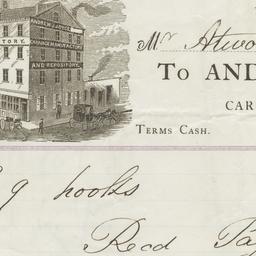 ANDREW J. JOYCE'S
CARRIAGE MANUFACTORY,
AND REPOSITORY.
TORY.
Mr Atwo
To AND
CAR
TERMS CASH.
g hooks
Recd Pay